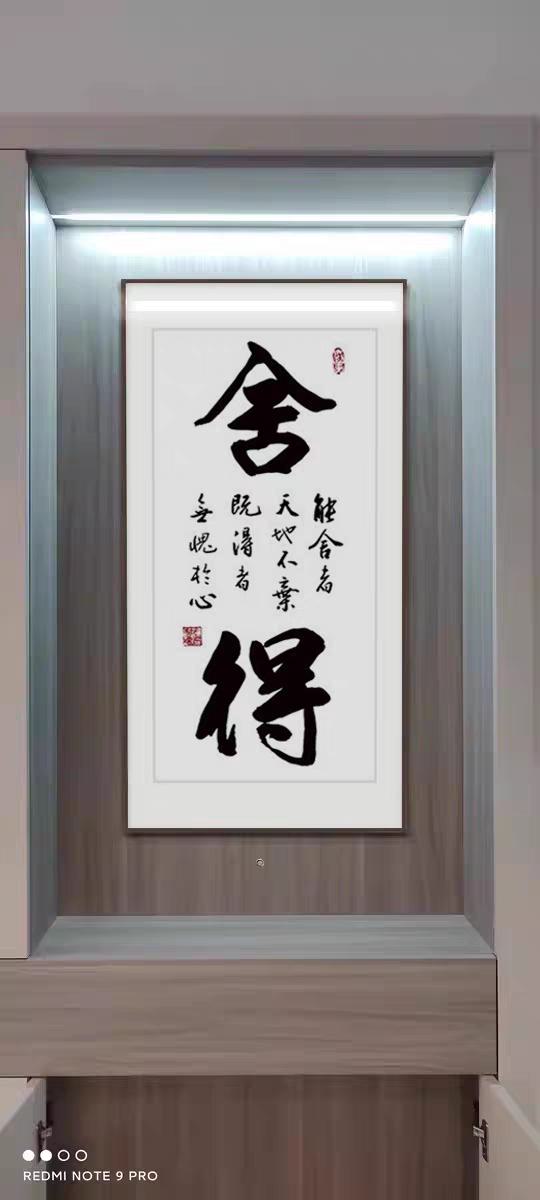 舍
能舍者
天地不棄
既得者
無愧於心
得
REDMI NOTE 9 PRO